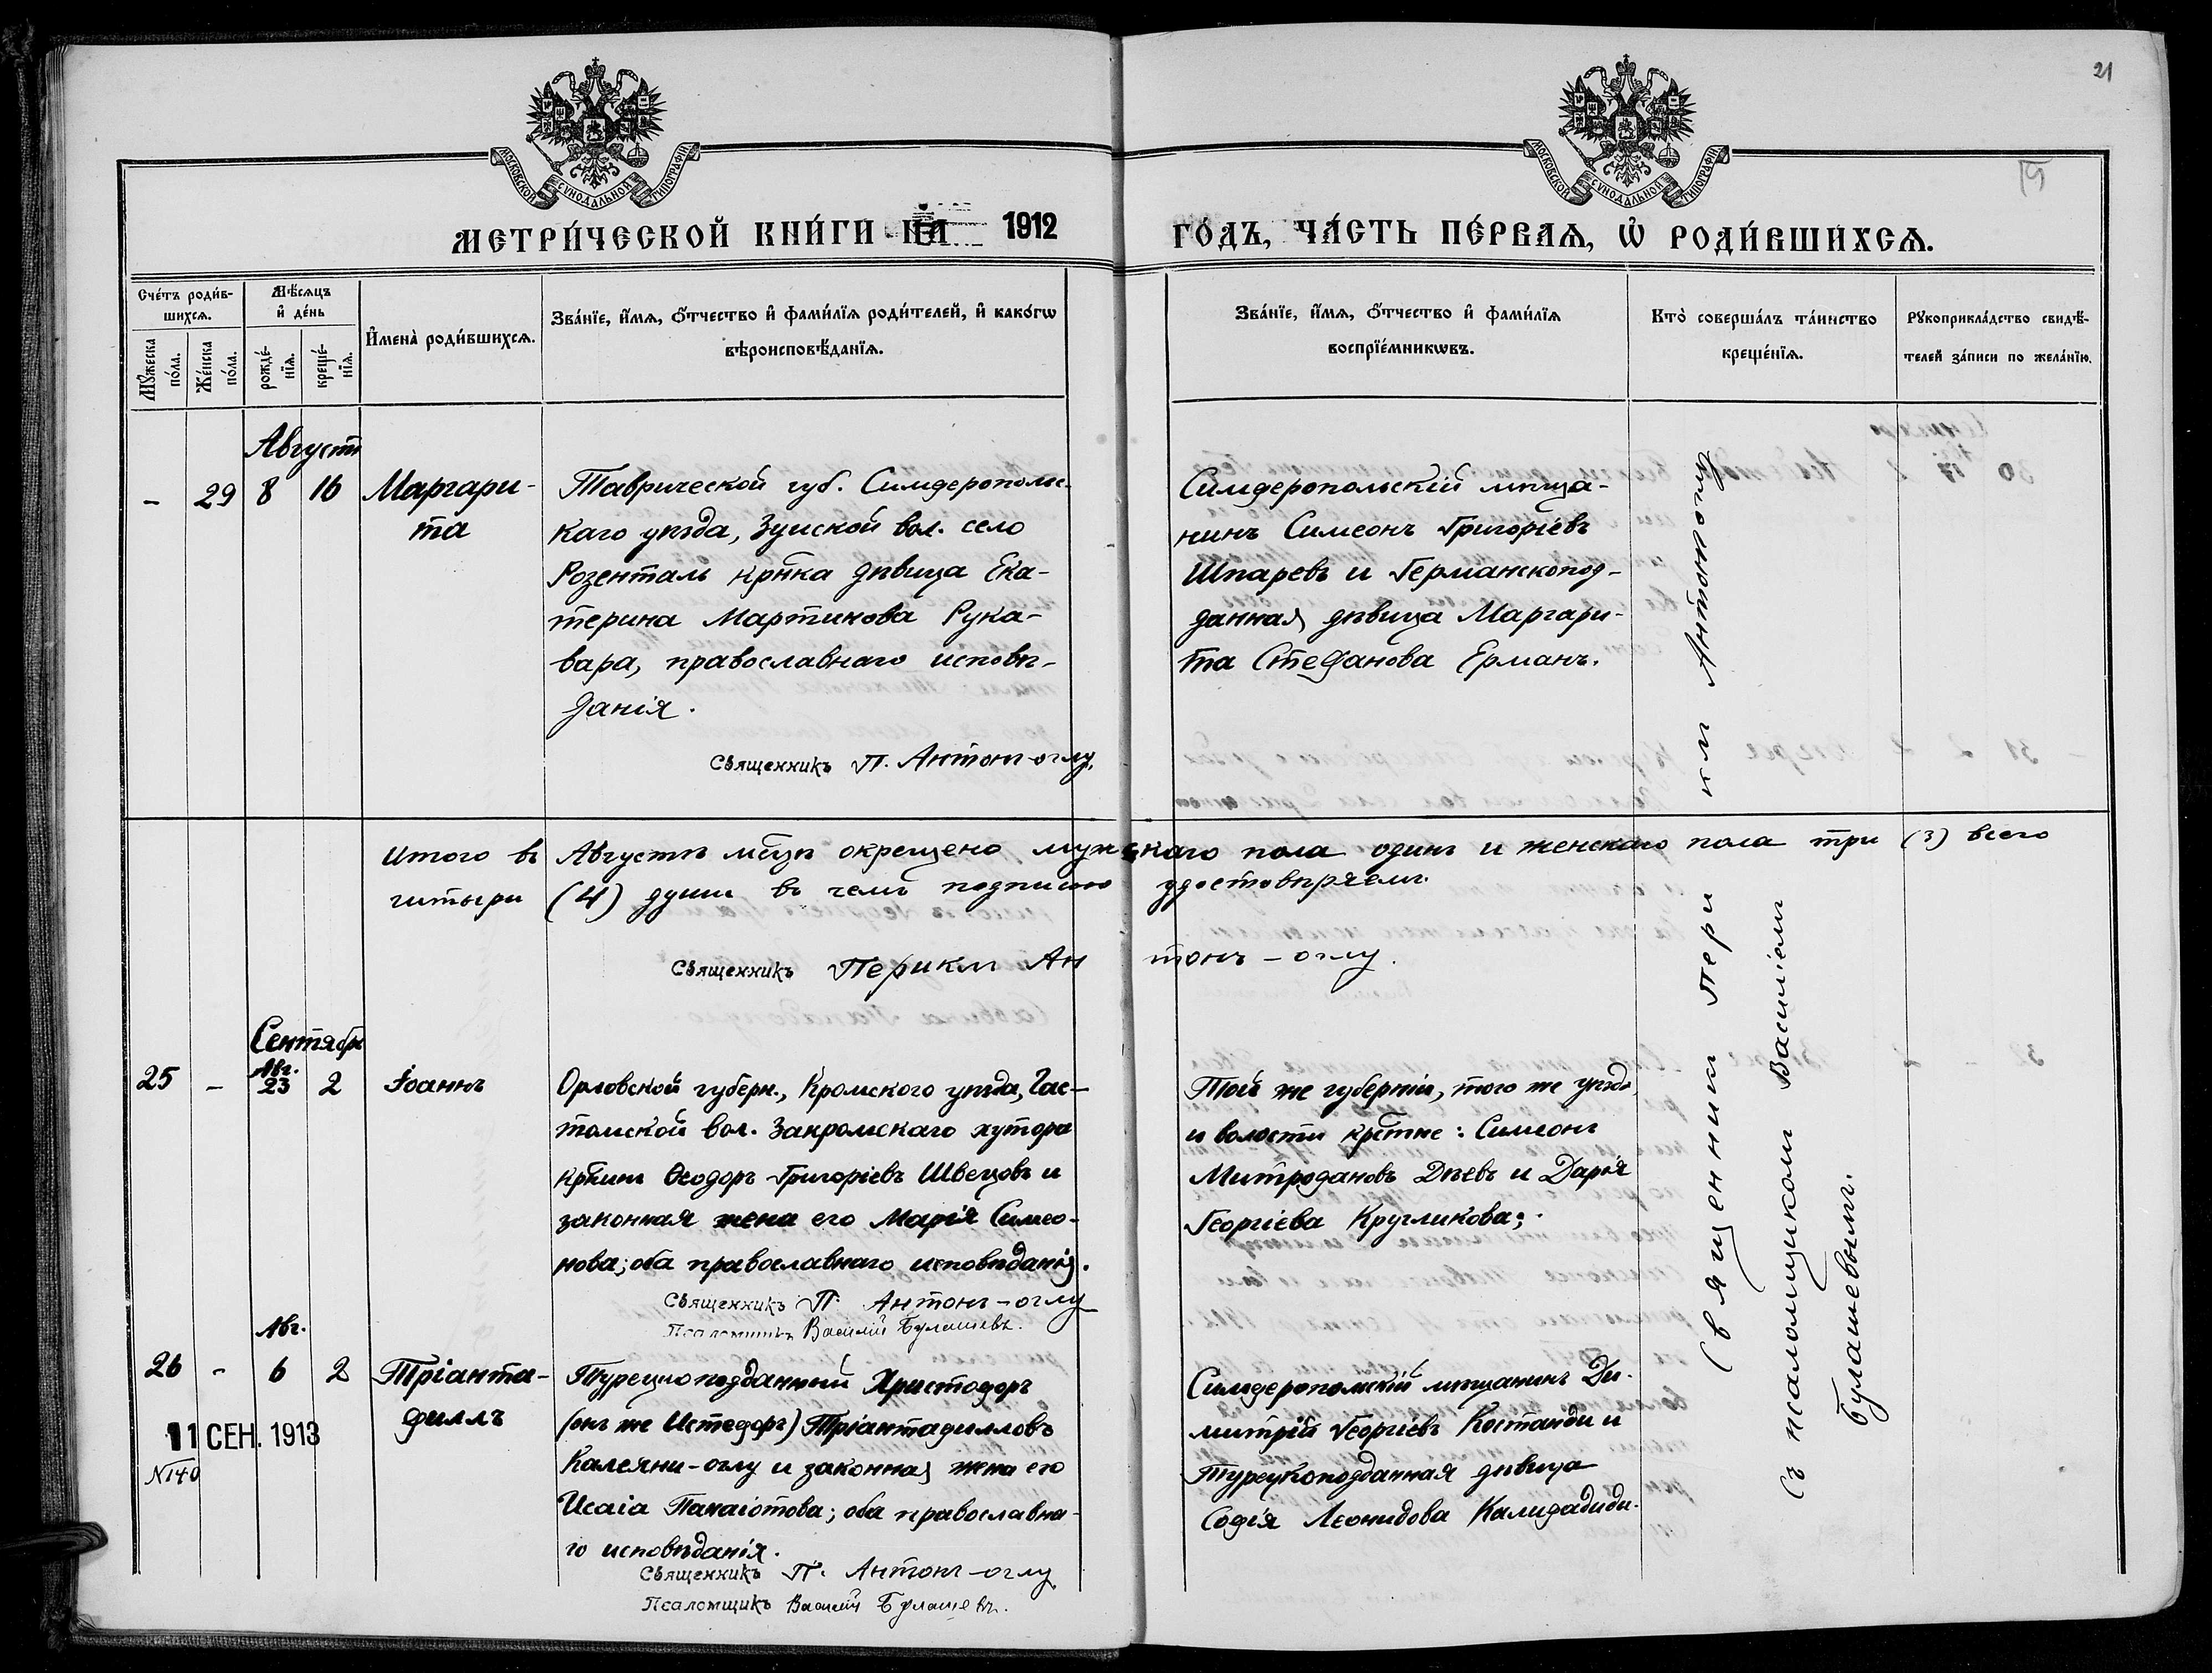 21
МОСКОВСКОЙ СѴНОДАЛЬНОЙ ТИПОГРАФІИ
МОСКОВСКОЙ СѴНОДАЛЬНОЙ ТИПОГРАФІИ
МЕТРИ́ЧЕСКОЙ КНИ́ГИ НА 1912 ГО́ДЪ, ЧА́СТЬ ПЕ́РВАѦ, Ѡ҆ РОДИ́ВШИХСѦ.
Сче́тъ роди́в-
шихсѧ.
Мꙋ́жеска по́ла.
Же́нска по́ла.
Мѣ́сѧцъ
и҆ де́нь
рожде́-
нїѧ.
креще́-
нїѧ.
И҆мена̀ роди́вшихсѧ.
Зва́нїе, и҆́мѧ, ѻ҆́тчество и҆ фами́лїѧ роди́телей, и҆ како́гѡ
вѣроисповѣ́данїѧ.
Зва́нїе, и҆́мѧ, ѻ҆́тчество и҆ фами́лїѧ
воспрїе́мникѡвъ.
Кто̀ соверша́лъ та́инство
креще́нїѧ.
Рꙋкоприкла́дство свидѣ́-
телей за́писи по жела́нїю.
Августъ
– 29 8 16 Маргари-
та
Таврической губ. Симферопольс-
каго уѣзда, Зуйской вол. село
Розенталь кр҃нка дѣвица Ека-
терина Мартинова Рука-
вара, православнаго исповѣ-
данія.
Священникъ П. Антонъ-оглу.
Симферопольскій мѣща-
нинъ Симеонъ Григоріевъ
Шпаревъ и Германскопод-
данная дѣвица Маргари-
та Стефанова Ерманъ.
Итого въ Августѣ мѣцѣ окрещено мужскаго пола одинъ и женскаго пола три (3) всего
читыри (4) души въ чемъ подписью удостовѣряемъ.
Священникъ Периклъ Антонъ-оглу.
Сентябрь
25 – Авг. 23 2 Іоаннъ
Орловской губерн., Кромского уѣзда, Гос-
томской вол. Закромскаго хутора
кр҃нинъ Ѳеодоръ Григоріевъ Швецовъ и
законная жена его Марія Симео-
нова; оба православнаго исповѣданія.
Священникъ П. Антонъ-оглу
Псаломщикъ Василій Булашевъ.
Той же губерніи, того же уѣзда
и волости кр҃тне: Симеонъ
Митрофановъ Дѣевъ и Дарія
Георгіева Кругликова;
Авг.
26 – 6 2 Тріанта-
филлъ
11 СЕН. 1913
N140
Турецкоподданный Христофоръ
(онъ же Истефоръ) Тріантафилловъ
Калеяни-оглу и законная жена его
Исаіа Панаіотова; оба православна-
го исповѣданія.
Священникъ П. Антонъ-оглу
Псаломщикъ Василій Булашевъ.
Симферопольскій мѣщанинъ Ди-
митрій Георгіевъ Костанди и
Турецкоподданная дѣвица
Софія Леонидова Калифадиди.
Священникъ Периклъ Антонъ оглу
съ псаломщикомъ Василіемъ
Булашевымъ.